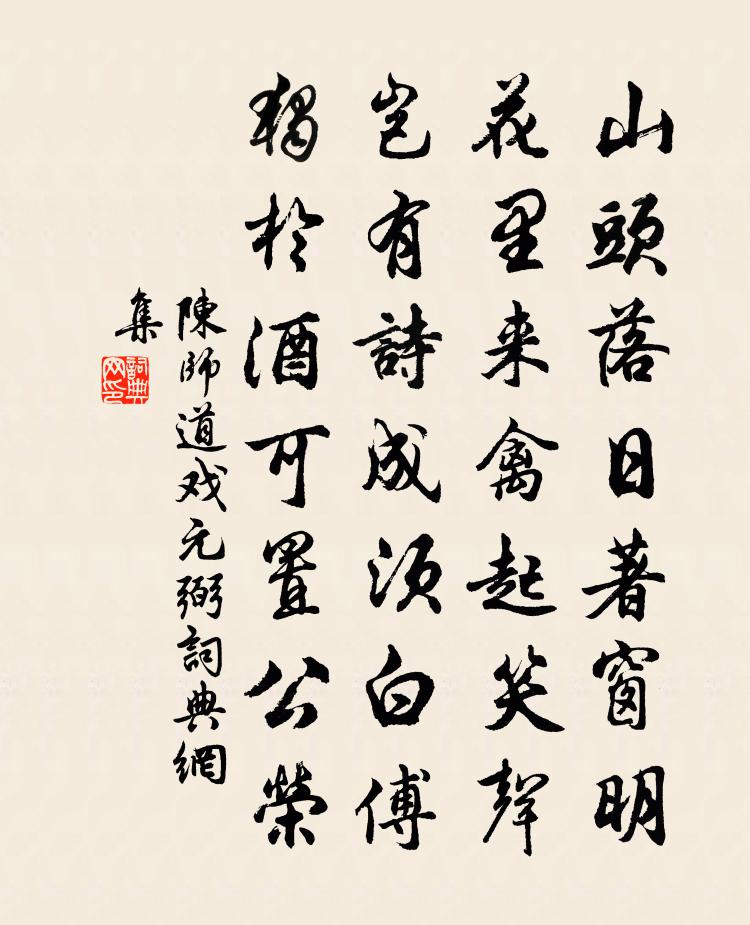 山頭落日著窗明
花里来禽起笑聲
豈有詩成須白傅
獨於酒可置公榮
陳師道戏元弼詞典網
集
詞典
网印